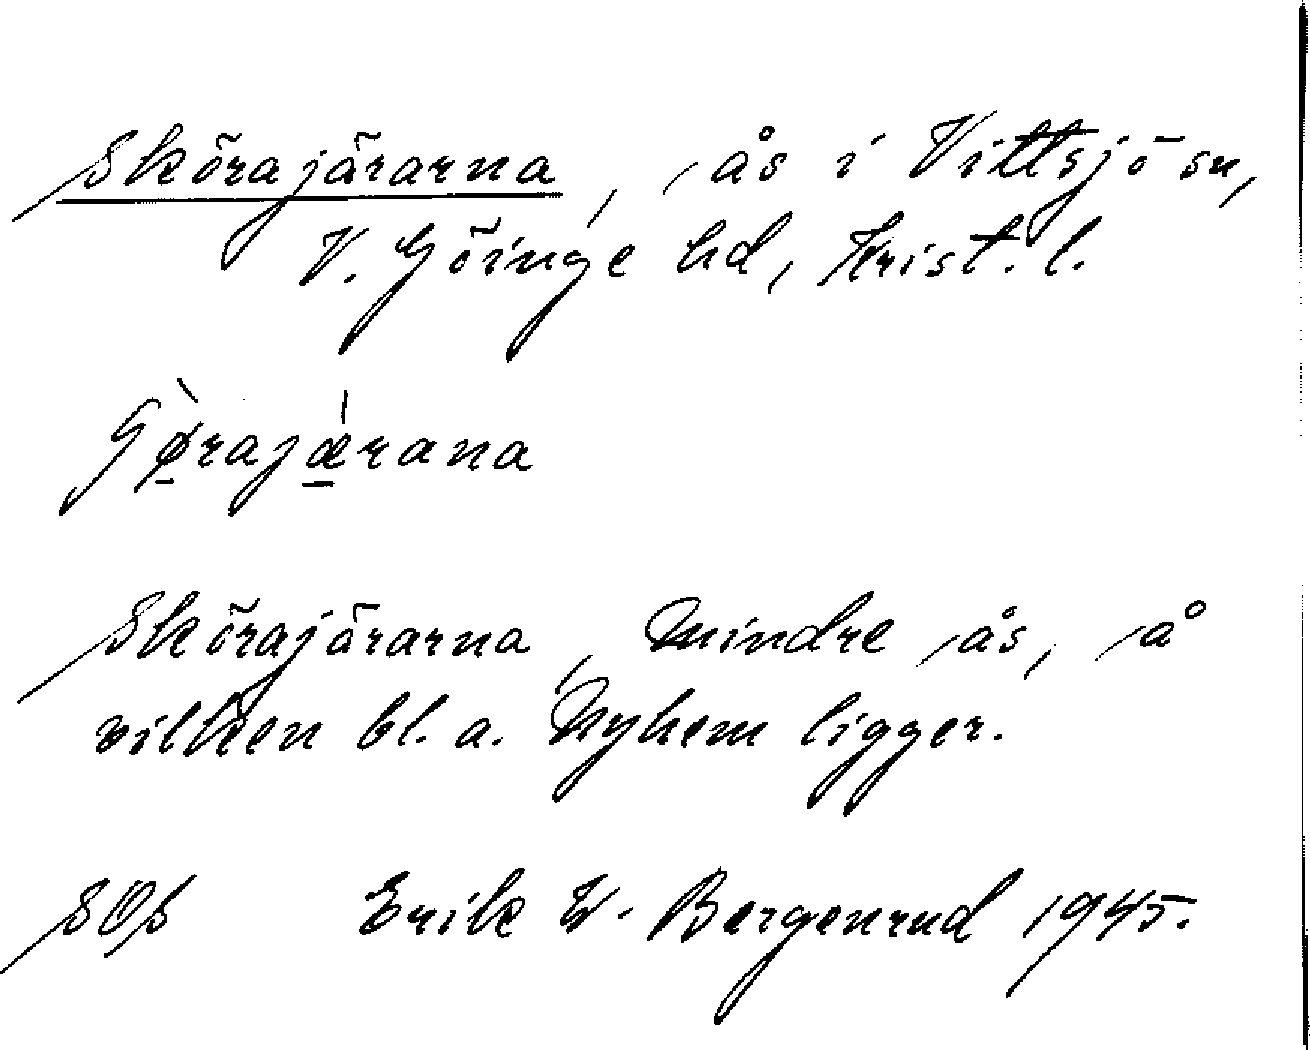 Skörajärarna, ås i Vittsjö sn,
V. Göinge hd, Krist. l.
Gø̀rajǽrana
Skörajärarna, mindre ås, å
vilken bl. a. Nyhem ligger.
Erik W. Bergenrud 1945.